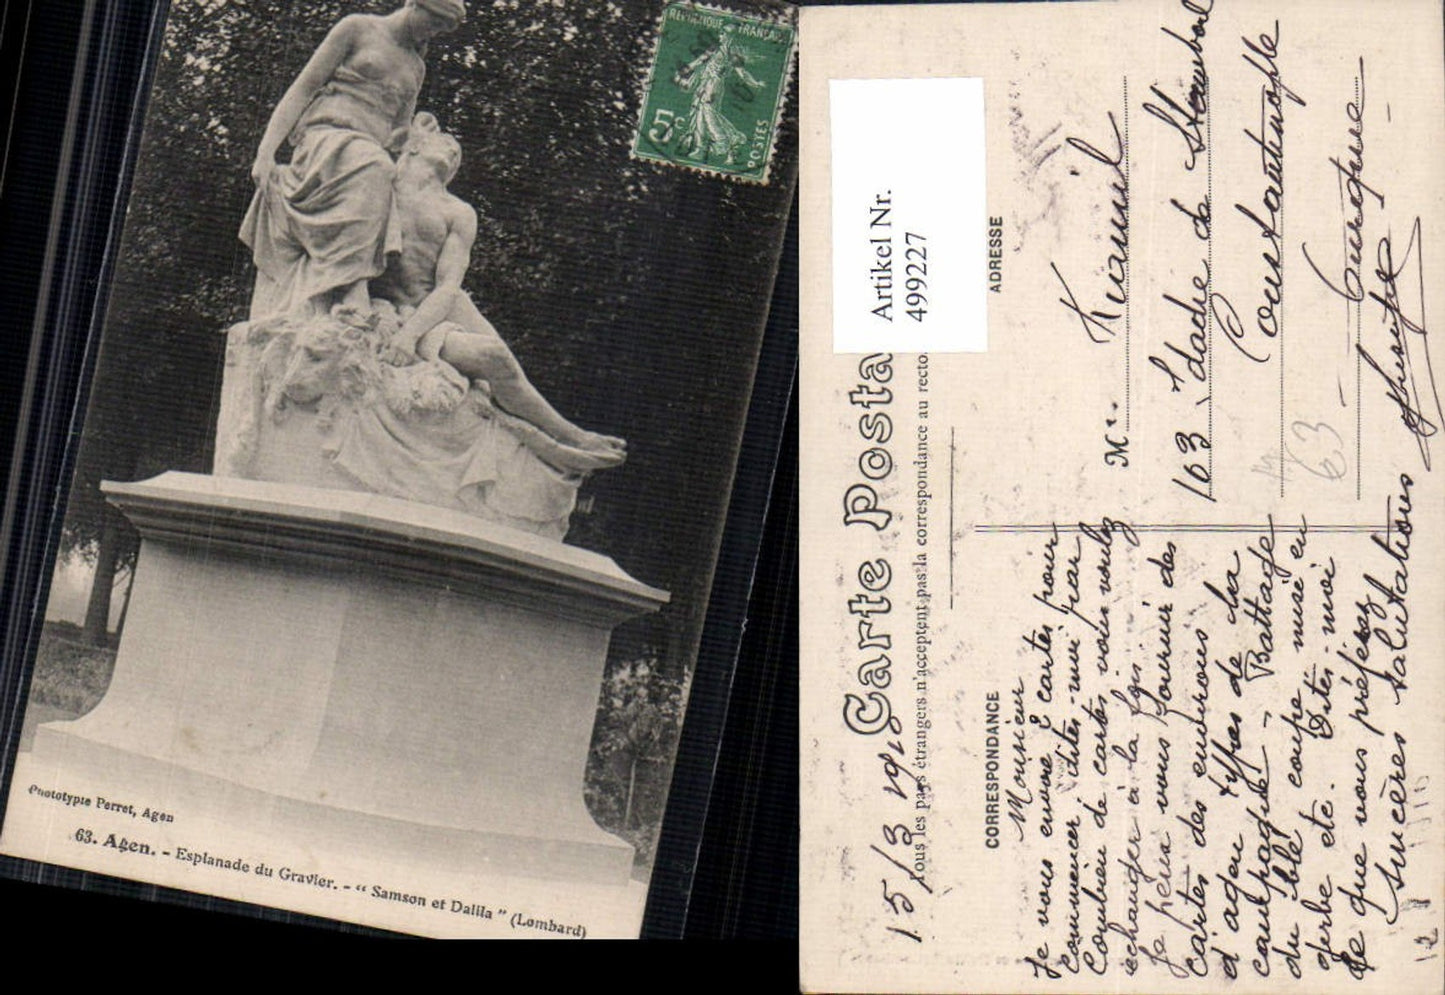 REPUBLIQUE FRANÇAISE
5c
POSTES
Phototypie Perret, Agen
63. Agen. - Esplanade du Gravier. - “ Samson et Dalila ” (Lombard)
Artikel Nr.
499227
Carte Posta
Tous les pays étrangers n'acceptent pas la correspondance au recto.
CORRESPONDANCE
ADRESSE
15/3 1913
Monsieur
Je vous envoie 2 cartes pour
commencer, dites-moi par
combien de cartes vous voulez
échanger à la fois.
Je peux vous fournir des
cartes des environs
d'agen types de la
campagne - Battage
du blé coupe mise en
gerbe etc. Dites-moi
ce que vous préférez
sincères salutations
Mr. Kiamil
163
de Stamboul
Constantinople
Turquie
63
12